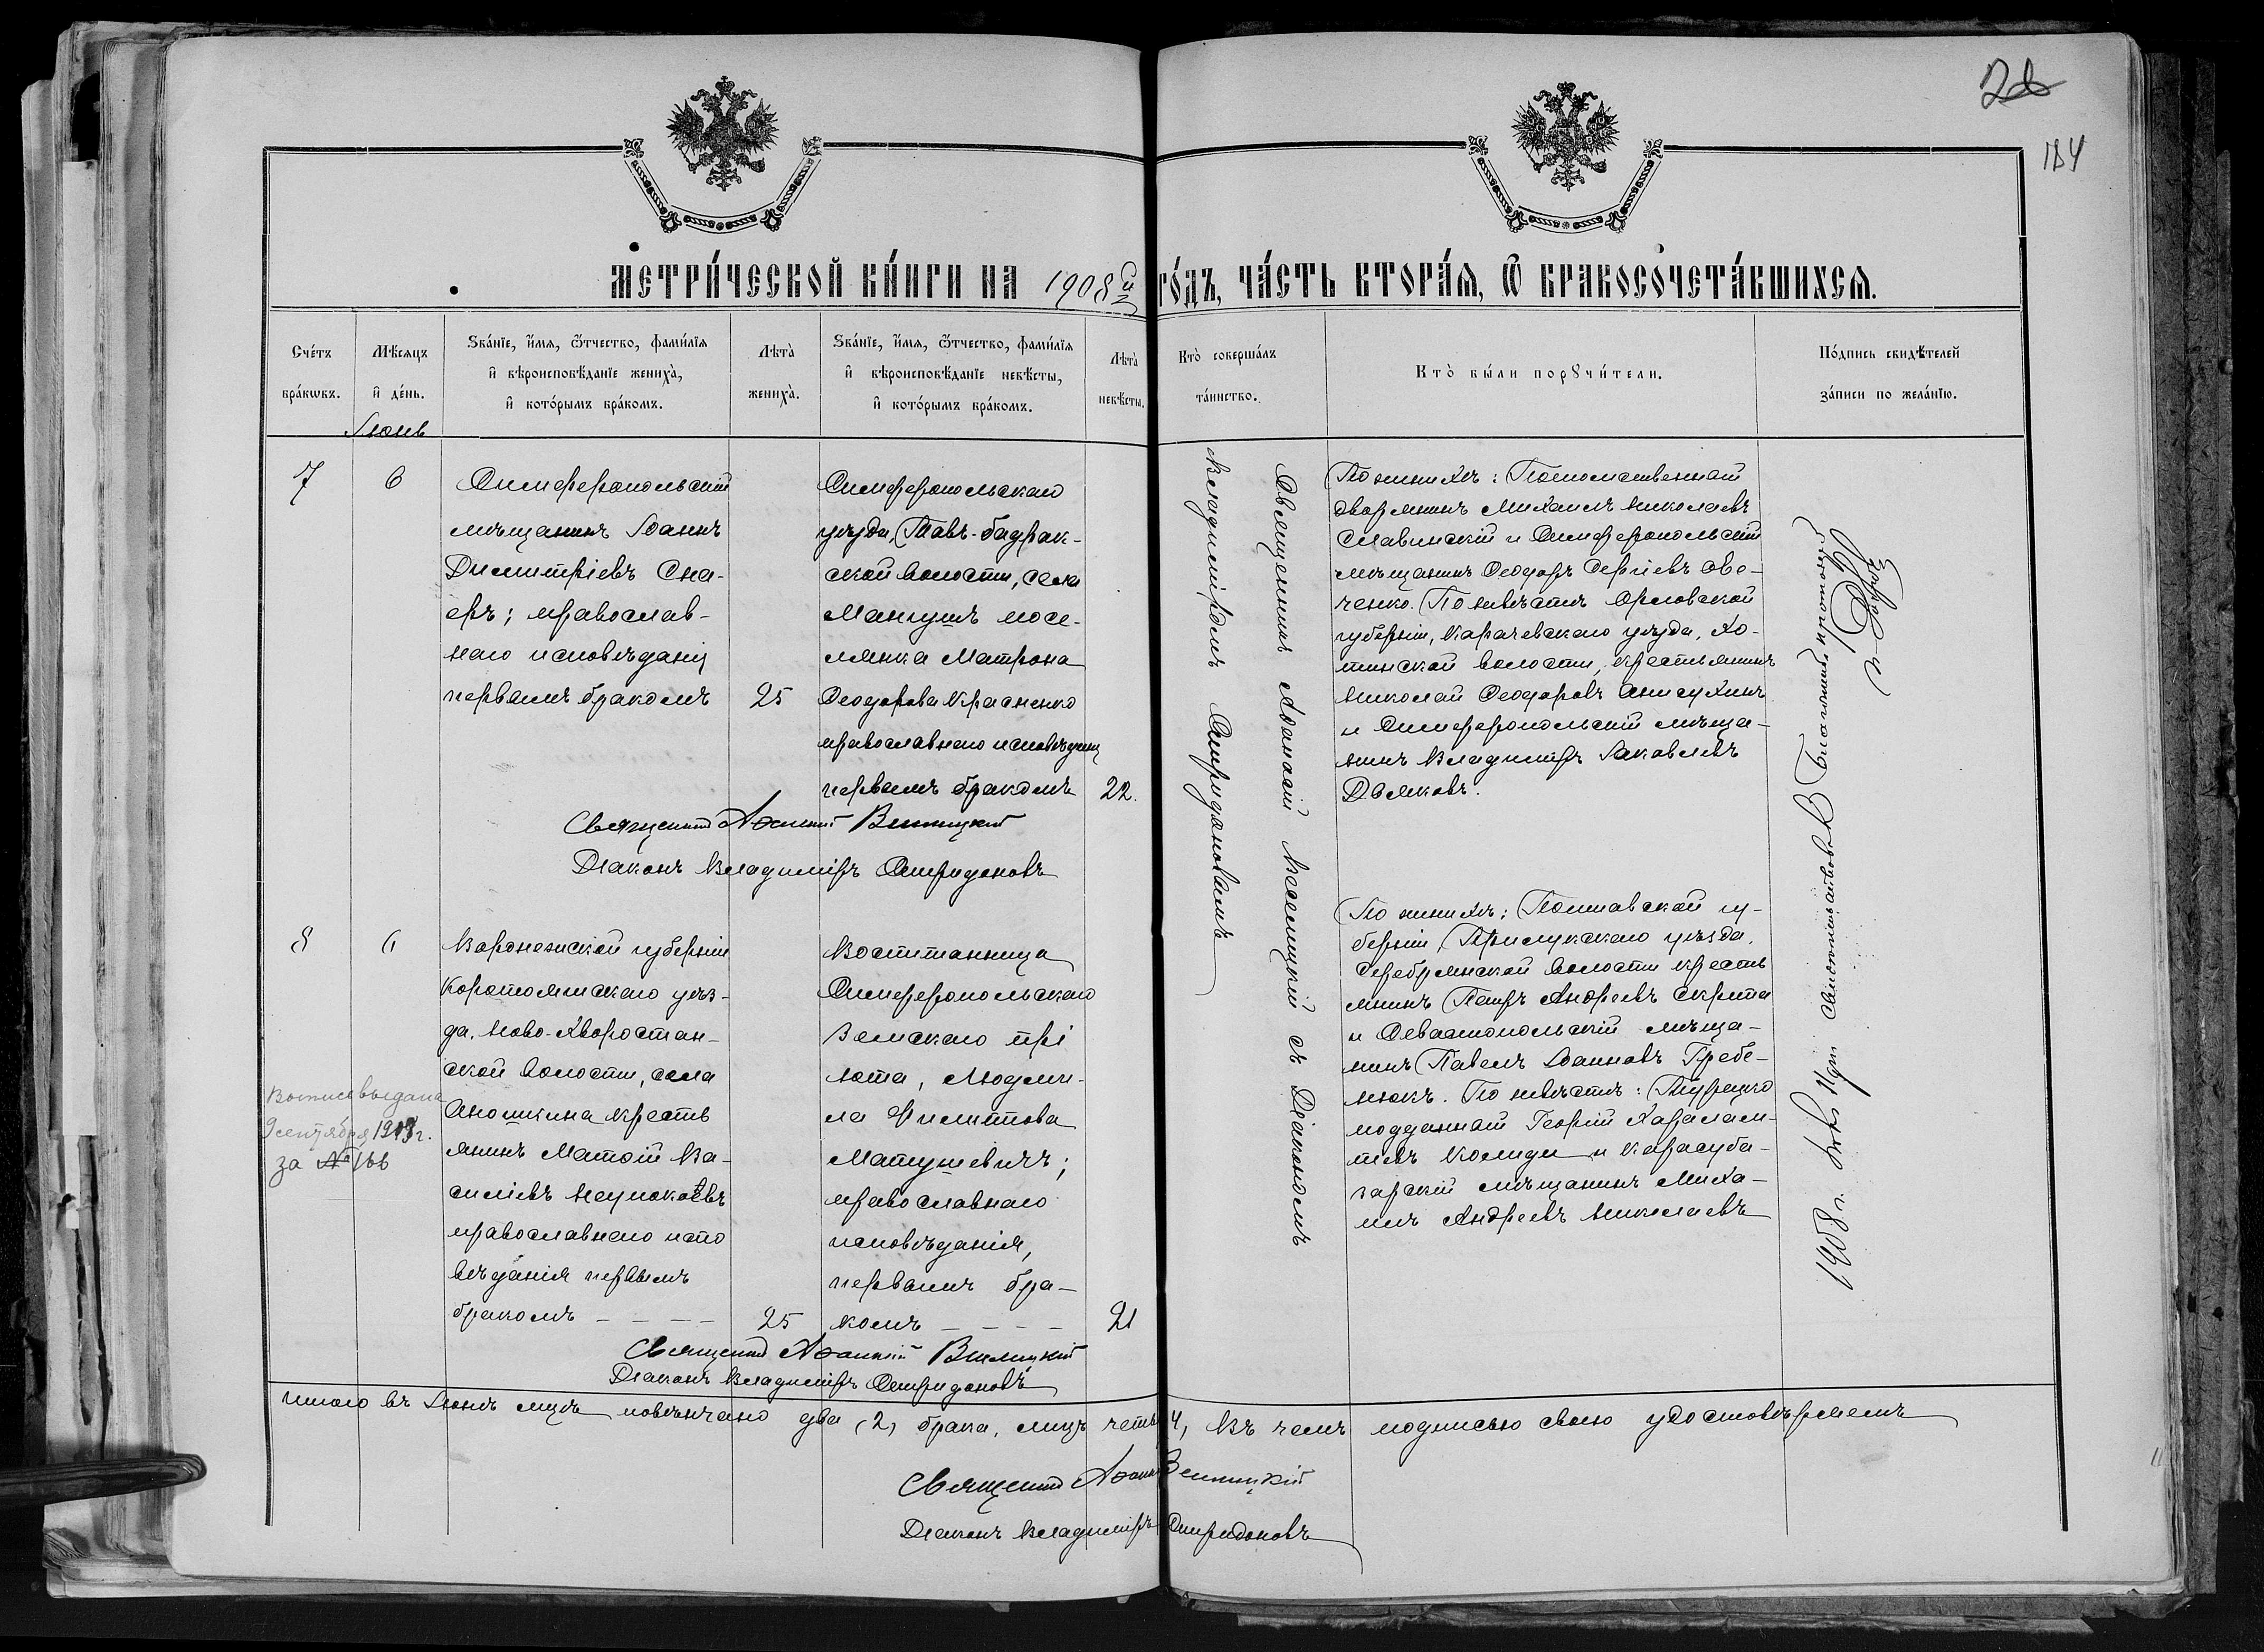 184
МЕТРИ́ЧЕСКОЙ КНИ́ГИ НА 1908й ГО́ДЪ, ЧА́СТЬ ВТОРА́Я, Ѿ БРАКОСОЧЕТА́ВШИХСЯ.
Сче́тъ бра́кѡвъ.
Мѣ́сяцъ и҆ де́нь.
Ѕва́нїе, и҆́мя, ѻ҆́тчество, фами́лїя и҆ вѣроисповѣ́данїе жениха̀, и҆ кото́рымъ бра́комъ.
Лѣта̀ жениха̀.
Ѕва́нїе, и҆́мя, ѻ҆́тчество, фами́лїя и҆ вѣроисповѣ́данїе невѣ́сты, и҆ кото́рымъ бра́комъ.
Лѣта̀ невѣ́сты.
Кто̀ соверша́лъ та́инство.
Кто̀ бы́ли порꙋчи́тели.
По́дпись свидѣ́телей за́писи по жела́нїю.
Іюнь
7
6
Симферопольскій
мѣщанинъ Іоаннъ
Димитріевъ Сна-
еръ; православ-
наго исповѣданія
первымъ бракомъ
25
Симферопольскаго
уѣзда, Тавъ-бадрак-
ской волости, села
Мангушъ посе-
лянка Матрона
Ѳеодорова Красненко
православнаго исповѣданія
первымъ бракомъ
22.
Священникъ Аѳанасій
Діаконъ Владиміръ Спиридоновъ
Священникъ Аѳанасій съ Діакономъ
Владиміромъ Спиридоновымъ
По женихѣ: Потомственный
дворянинъ Михаилъ Николаевъ
Славинскій и Симферопольскій
мѣщанинъ Ѳеодоръ Сергіевъ Ове-
ченко. По невѣстѣ Орловской
губерніи, Карачевскаго уѣзда, Хо-
тинской волости, крестьянинъ
Николай Ѳеодоровъ Анисухинъ
и Симферопольскій мѣща-
нинъ Владиміръ Іаковлевъ
Дьяковъ.
8
6
Воронежской губерніи
Коротоякскаго уѣз-
да, Ново-Хворостан-
ской волости, села
Аношкина кресть
янинъ Матѳій Ва-
силіевъ Неупокоевъ
православнаго испо
вѣданія первымъ
бракомъ – – – –
25
Воспитанница
Симферопольскаго
Земскаго прі
юта, Людми-
ла Филиппова
Матушевичъ;
православнаго
исповѣданія,
первымъ бра-
комъ – – – –
21
Выпись выдана
9 сентября
за № 166
По женихѣ: Полтавской гу-
берніи, Прилукскаго уѣзда,
Серебрянской волости кресть
янинъ Петръ Андреевъ Скрипа
и Севастопольскій мѣща-
нинъ Павелъ Іоанновъ Гребе-
нюкъ. По невѣстѣ: Турецко
подданный Георгій Харалам-
піевъ и Карасуба-
зарскій мѣщанинъ Миха-
илъ Андреевъ Николаевъ
1908 г.
Священникъ Аѳанасій
Діаконъ Владиміръ Спиридоновъ
Итого въ Іюнѣ мцѣ повѣнчано два (2) брака, лицъ 4, въ чемъ подписью своею удостовѣряемъ
Священникъ
Діаконъ Владиміръ Спиридоновъ